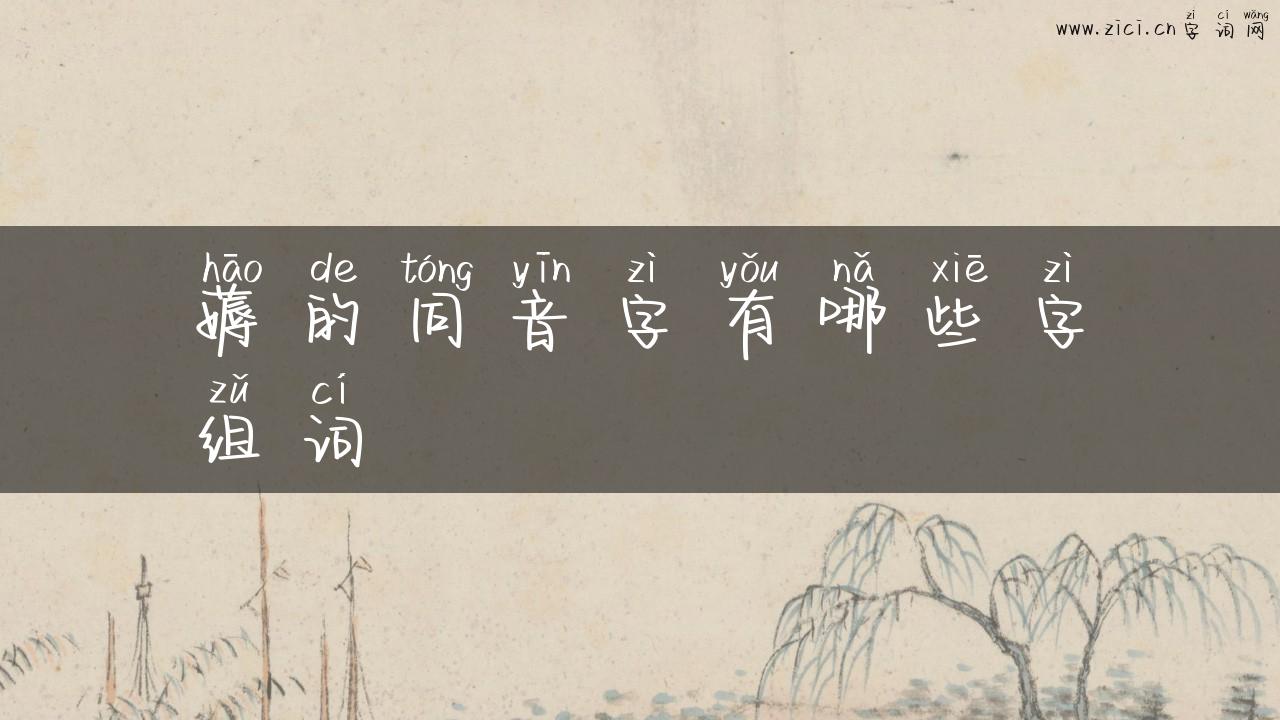 zì cí wǎng
www.zici.cn 字词网
hāo de tóng yīn zì yǒu nǎ xiē zì
薅的同音字有哪些字
zǔ cí
组词